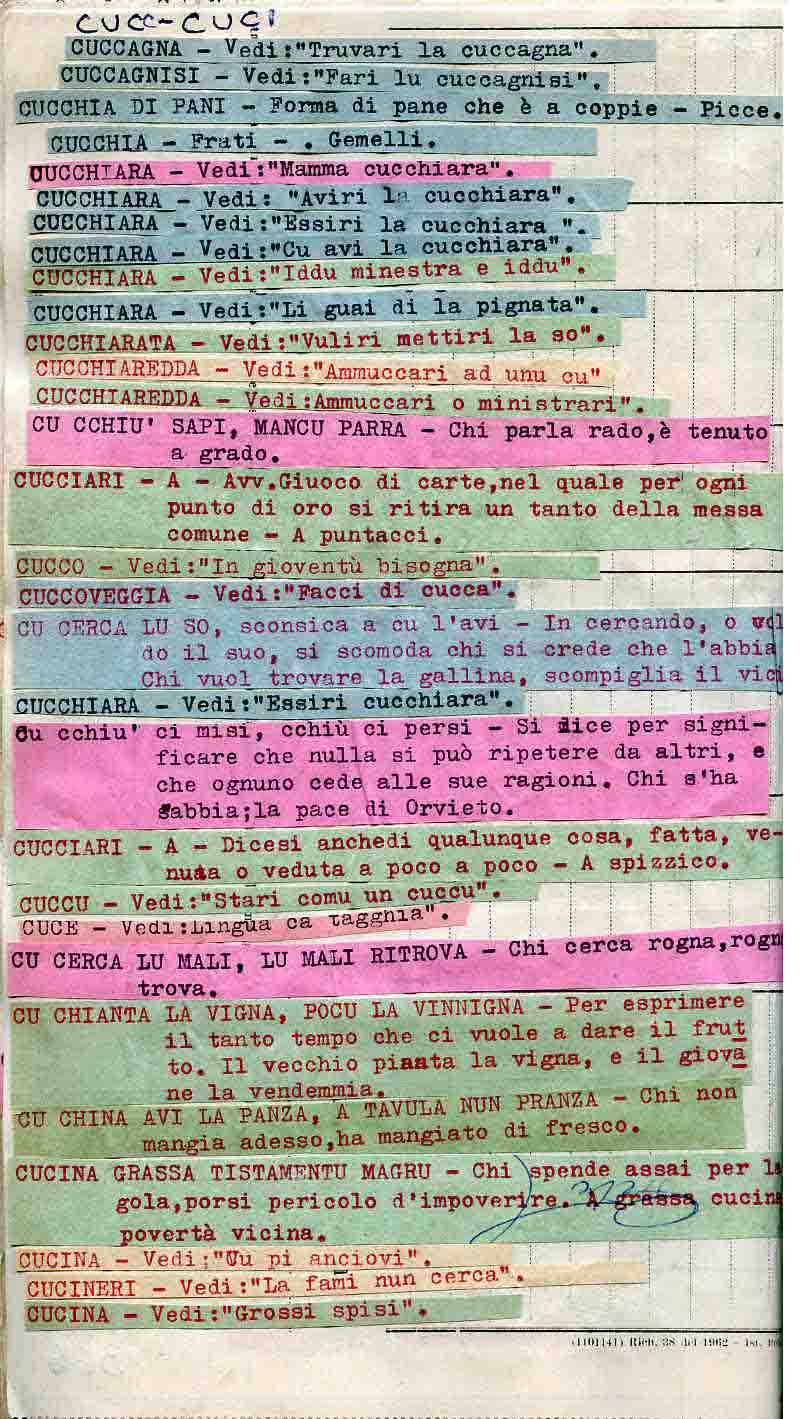 CUCC-CUCI
CUCCAGNA - Vedi:"Truvari la cuccagna".
CUCCAGNISI - Vedi:"Fari lu cuccagnisi".
CUCCHIA DI PANI - Forma di pane che è a coppie - Picce.
CUCCHIA - Frati - . Gemelli.
CUCCHIARA - Vedi:"Mamma cucchiara".
CUCCHIARA - Vedi: "Aviri la cucchiara".
CUCCHIARA - Vedi:"Essiri la cucchiara ".
CUCCHIARA - Vedi:"Cu avi la cucchiara".
CUCCHIARA - Vedi:"Iddu minestra e iddu".
CUCCHIARA - Vedi:"Li guai di la pignata".
CUCCHIARATA - Vedi:"Vuliri mettiri la so".
CUCCHIAREDDA - Vedi:"Ammuccari ad unu cu"
CUCCHIAREDDA - Vedi:Ammuccari o ministrari".
CU CCHIU' SAPI, MANCU PARRA - Chi parla rado,è tenuto
a grado.
CUCCIARI - A - Avv.Giuoco di carte,nel quale per ogni
punto di oro si ritira un tanto della messa
comune - A puntacci.
CUCCO - Vedi:"In gioventù bisogna".
CUCCOVEGGIA - Vedi:"Facci di cucca".
CU CERCA LU SO, sconsica a cu l'avi - In cercando, o vol
do il suo, si scomoda chi si crede che l'abbia
Chi vuol trovare la gallina, scompiglia il vici
CUCCHIARA - Vedi:"Essiri cucchiara".
Cu cchiu' ci misi, cchiù ci persi - Si dice per signi-
ficare che nulla si può ripetere da altri, e
che ognuno cede alle sue ragioni. Chi s'ha
sabbia;la pace di Orvieto.
CUCCIARI - A - Dicesi anchedi qualunque cosa, fatta, ve-
nuta o veduta a poco a poco - A spizzico.
CUCCU - Vedi:"Stari comu un cuccu".
CUCE - Vedi:Lingua ca tagghia".
CU CERCA LU MALI, LU MALI RITROVA - Chi cerca rogna,rogn
trova.
CU CHIANTA LA VIGNA, POCU LA VINNIGNA - Per esprimere
il tanto tempo che ci vuole a dare il frut
to. Il vecchio pianta la vigna, e il giova
ne la vendemmia.
CU CHINA AVI LA PANZA, A TAVULA NUN PRANZA - Chi non
mangia adesso,ha mangiato di fresco.
CUCINA GRASSA TISTAMENTU MAGRU - Chi spende assai per la
gola,porsi pericolo d'impoverire. A grassa cucina
povertà vicina.
CUCINA - Vedi:"Cu pi anciovi".
CUCINERI - Vedi:"La fami nun cerca".
CUCINA - Vedi:"Grossi spisi".
(1101141) Rich. 38 del 1962 - Ist.